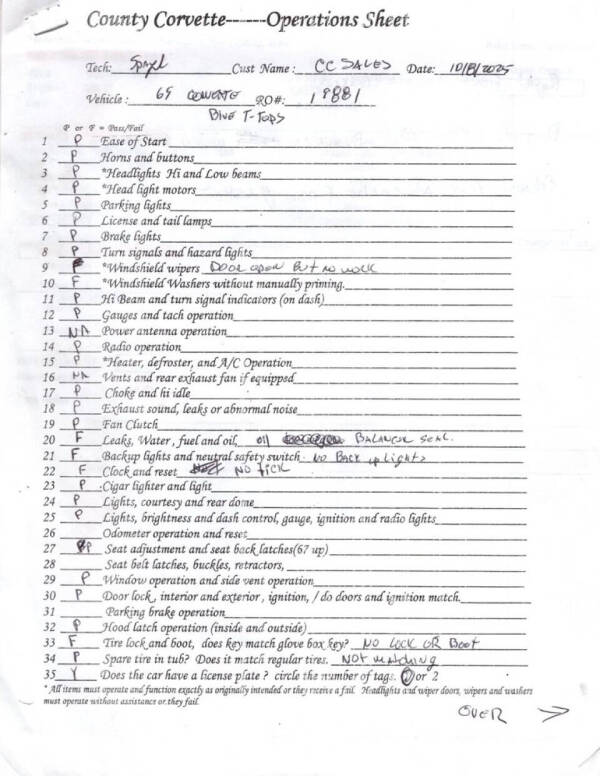 County Corvette-------Operations Sheet
Tech: Cust Name: CC SALES Date: 10/8/2025
Vehicle: 69 RO#: 19881
Blue T-Tops
P or F = Pass/Fail
1 P Ease of Start
2 P Horns and buttons
3 P *Headlights Hi and Low beams
4 P *Head light motors
5 P Parking lights
6 P License and tail lamps
7 P Brake lights
8 P Turn signals and hazard lights
9 F *Windshield wipers Door open But no work
10 F *Windshield Washers without manually priming.
11 P Hi Beam and turn signal indicators (on dash)
12 P Gauges and tach operation
13 NA Power antenna operation
14 P Radio operation
15 P *Heater, defroster, and A/C Operation
16 NA Vents and rear exhaust fan if equipped
17 P Choke and hi idle
18 P Exhaust sound, leaks or abnormal noise
19 P Fan Clutch
20 F Leaks, Water, fuel and oil, oil BALANCER SEAL.
21 F Backup lights and neutral safety switch. No Back up Lights
22 F Clock and reset NO TICK
23 P Cigar lighter and light
24 P Lights, courtesy and rear dome
25 P Lights, brightness and dash control, gauge, ignition and radio lights
26 Odometer operation and reset
27 P Seat adjustment and seat back latches(67 up)
28 Seat belt latches, buckles, retractors,
29 P Window operation and side vent operation
30 P Door lock, interior and exterior, ignition, / do doors and ignition match.
31 Parking brake operation
32 P Hood latch operation (inside and outside)
33 F Tire lock and boot, does key match glove box key? NO LOCK OR BOOT
34 P Spare tire in tub? Does it match regular tires. NOT matching
35 Y Does the car have a license plate ? circle the number of tags. 1 or 2
* All items must operate and function exactly as originally intended or they receive a fail. Headlights and wiper doors, wipers and washers
must operate without assistance or they fail.
OVER >